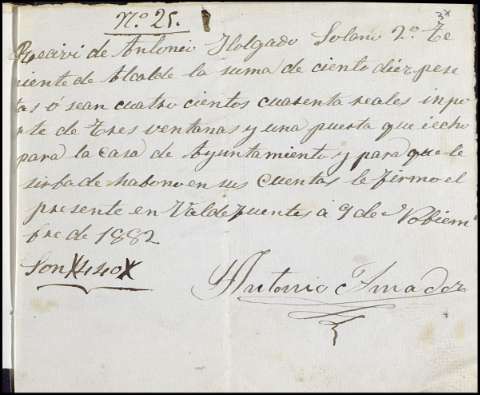 Nº 25.
Recivi de Antonio Holgado Solano 2º Te
niente de Alcalde la suma de ciento diez pese
tas ó sean cuatro cientos cuarenta reales inpo
rte de tres ventanas y una puerta que iecho
para la casa de Ayuntamiento y para que le
sirba de habono en sus cuentas le firmo el
presente en Valdefuentes á 9 de Nobiem
bre de 1882
Son X440X
Antonio Amador